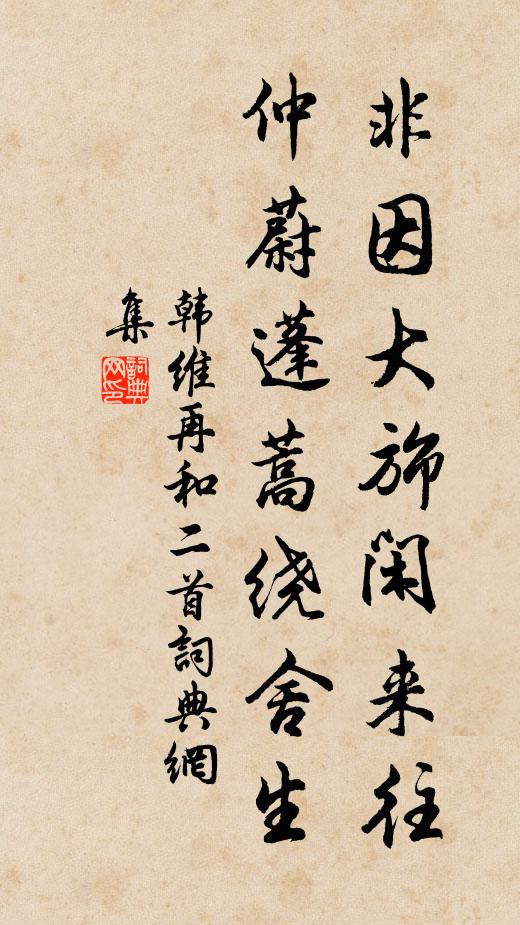 非因大斾閑来往
仲蔚蓬蒿绕舍生
韩维再和二首詞典網
集
詞典
网印